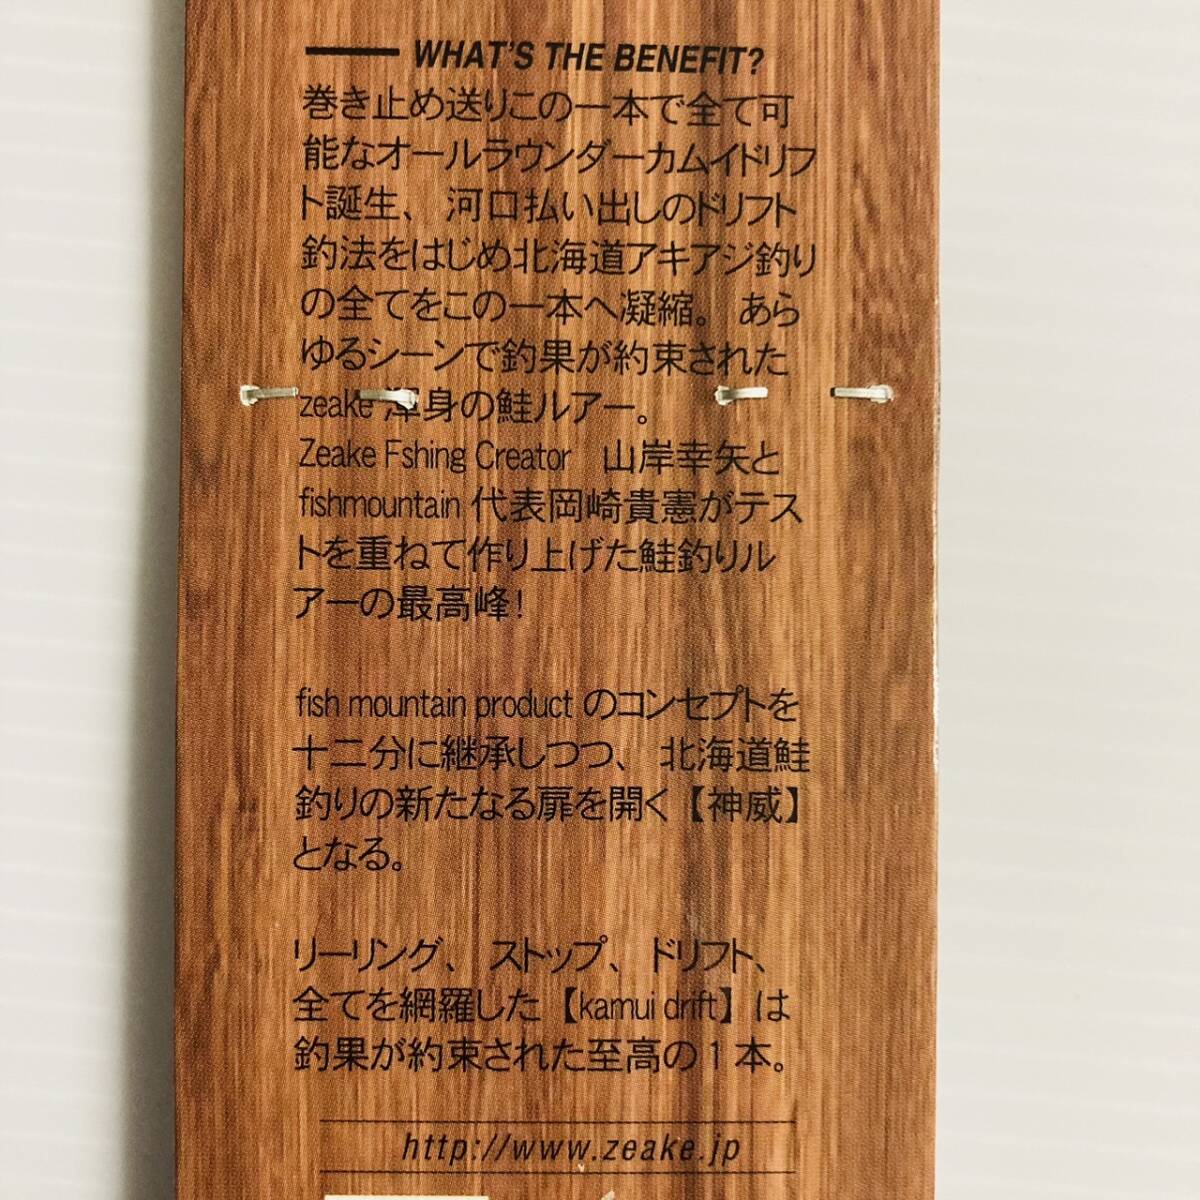 WHAT'S THE BENEFIT?
巻き止め送りこの一本で全て可
能なオールラウンダーカムイドリフ
ト誕生、河口払い出しのドリフト
釣法をはじめ北海道アキアジ釣り
の全てをこの一本へ凝縮。あら
ゆるシーンで釣果が約束された
zeake 渾身の鮭ルアー。
Zeake Fshing Creator　山岸幸矢と
fishmountain 代表岡崎貴憲がテス
トを重ねて作り上げた鮭釣りル
アーの最高峰!
fish mountain product のコンセプトを
十二分に継承しつつ、北海道鮭
釣りの新たなる扉を開く【神威】
となる。
リーリング、ストップ、ドリフト、
全てを網羅した【kamui drift】は
釣果が約束された至高の１本。
http://www.zeake.jp